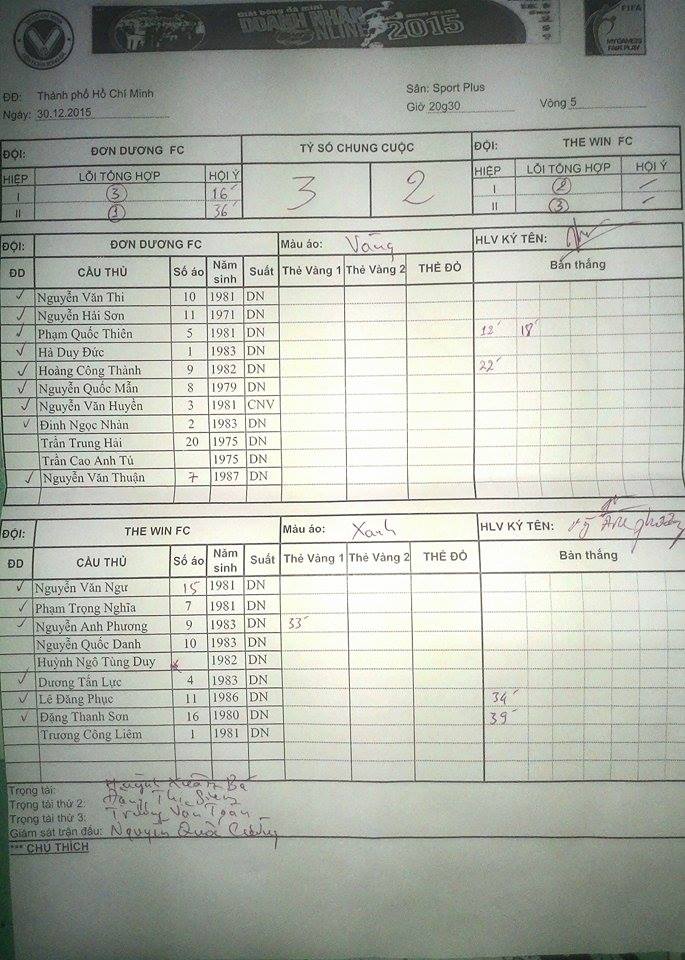 Giải bóng đá mini
DOANH NHÂN
ONLINE 2015
FIFA
MY GAME IS
FAIR PLAY
ĐĐ: Thành phố Hồ Chí Minh
Sân: Sport Plus
Ngày: 30.12.2015
Giờ 20g30 Vòng 5
ĐỘI: ĐƠN DƯƠNG FC TỶ SỐ CHUNG CUỘC ĐỘI: THE WIN FC
HIỆP LỖI TỔNG HỢP HỘI Ý 3 2 HIỆP LỖI TỔNG HỢP HỘI Ý
I 3 16' I 2 –
II 1 36' II 3 –
ĐỘI: ĐƠN DƯƠNG FC Màu áo: Vàng HLV KÝ TÊN:
ĐD CẦU THỦ Số áo Năm sinh Suất Thẻ Vàng 1 Thẻ Vàng 2 THẺ ĐỎ Bàn thắng
✓ Nguyễn Văn Thi 10 1981 DN
✓ Nguyễn Hải Sơn 11 1971 DN
✓ Phạm Quốc Thiên 5 1981 DN 12' 18'
✓ Hà Duy Đức 1 1983 DN
✓ Hoàng Công Thành 9 1982 DN 22'
✓ Nguyễn Quốc Mẫn 8 1979 DN
✓ Nguyễn Văn Huyền 3 1981 CNV
✓ Đinh Ngọc Nhàn 2 1983 DN
Trần Trung Hải 20 1975 DN
Trần Cao Anh Tú 1975 DN
✓ Nguyễn Văn Thuận 7 1987 DN
ĐỘI: THE WIN FC Màu áo: Xanh HLV KÝ TÊN:
ĐD CẦU THỦ Số áo Năm sinh Suất Thẻ Vàng 1 Thẻ Vàng 2 THẺ ĐỎ Bàn thắng
✓ Nguyễn Văn Ngư 15 1981 DN
✓ Phạm Trọng Nghĩa 7 1981 DN
✓ Nguyễn Anh Phương 9 1983 DN 33'
Nguyễn Quốc Danh 10 1983 DN
Huỳnh Ngô Tùng Duy 1982 DN
✓ Dương Tấn Lực 4 1983 DN
✓ Lê Đăng Phục 11 1986 DN 34'
✓ Đặng Thanh Sơn 16 1980 DN 39'
Trương Công Liêm 1 1981 DN
Trọng tài: Huỳnh Xuân Bá
Trọng tài thứ 2:
Trọng tài thứ 3: Trương Văn Toàn
Giám sát trận đấu: Nguyễn Quốc Cường
*** CHÚ THÍCH